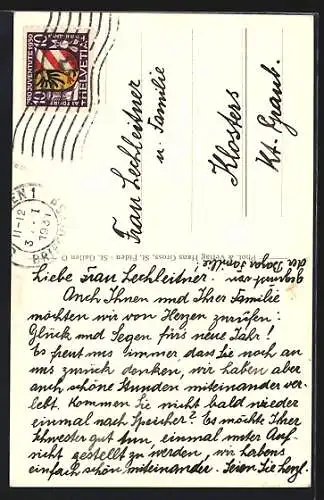 PRO JUVENTUTE 1930
HELVETIA
10 10
11-12
3. I
1931
BRIEF
Frau Lechleitner
u. Familie
Klosters
Kt. Graub.
Phot. & Verlag Hans Gross, St. Fiden - St. Gallen O
Liebe Frau Lechleitner!
Auch Ihnen und Ihrer Familie
möchten wir von Herzen zurufen:
Glück und Segen fürs neue Jahr!
Es freut uns immer, dass Sie noch an
uns zurück denken, wir haben aber
auch schöne Stunden miteinander ver-
lebt. Kommen Sie nicht bald wieder
einmal nach Speicher? Es möchte Ihrer
Schwester gut tun, einmal unter Auf-
sicht gestellt zu werden, wir habens
einfach schön miteinander. Seien Sie herzl.
gegrüsst von
der Familie